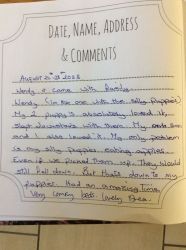 DATE, NAME, ADDRESS
& COMMENTS
August 21st
Wendy & came with family
Wendy (I'm the one with the silly puppies)
My 2 puppy's absolutely loved it,
slept downstairs with them. My
and I also loved it. My only problem
is my silly puppies eating apples.
Even if we picked them up. They would
still fall down. But that's down to my
puppies. Had an amazing time,
Very comfy beds. Lovely Area.